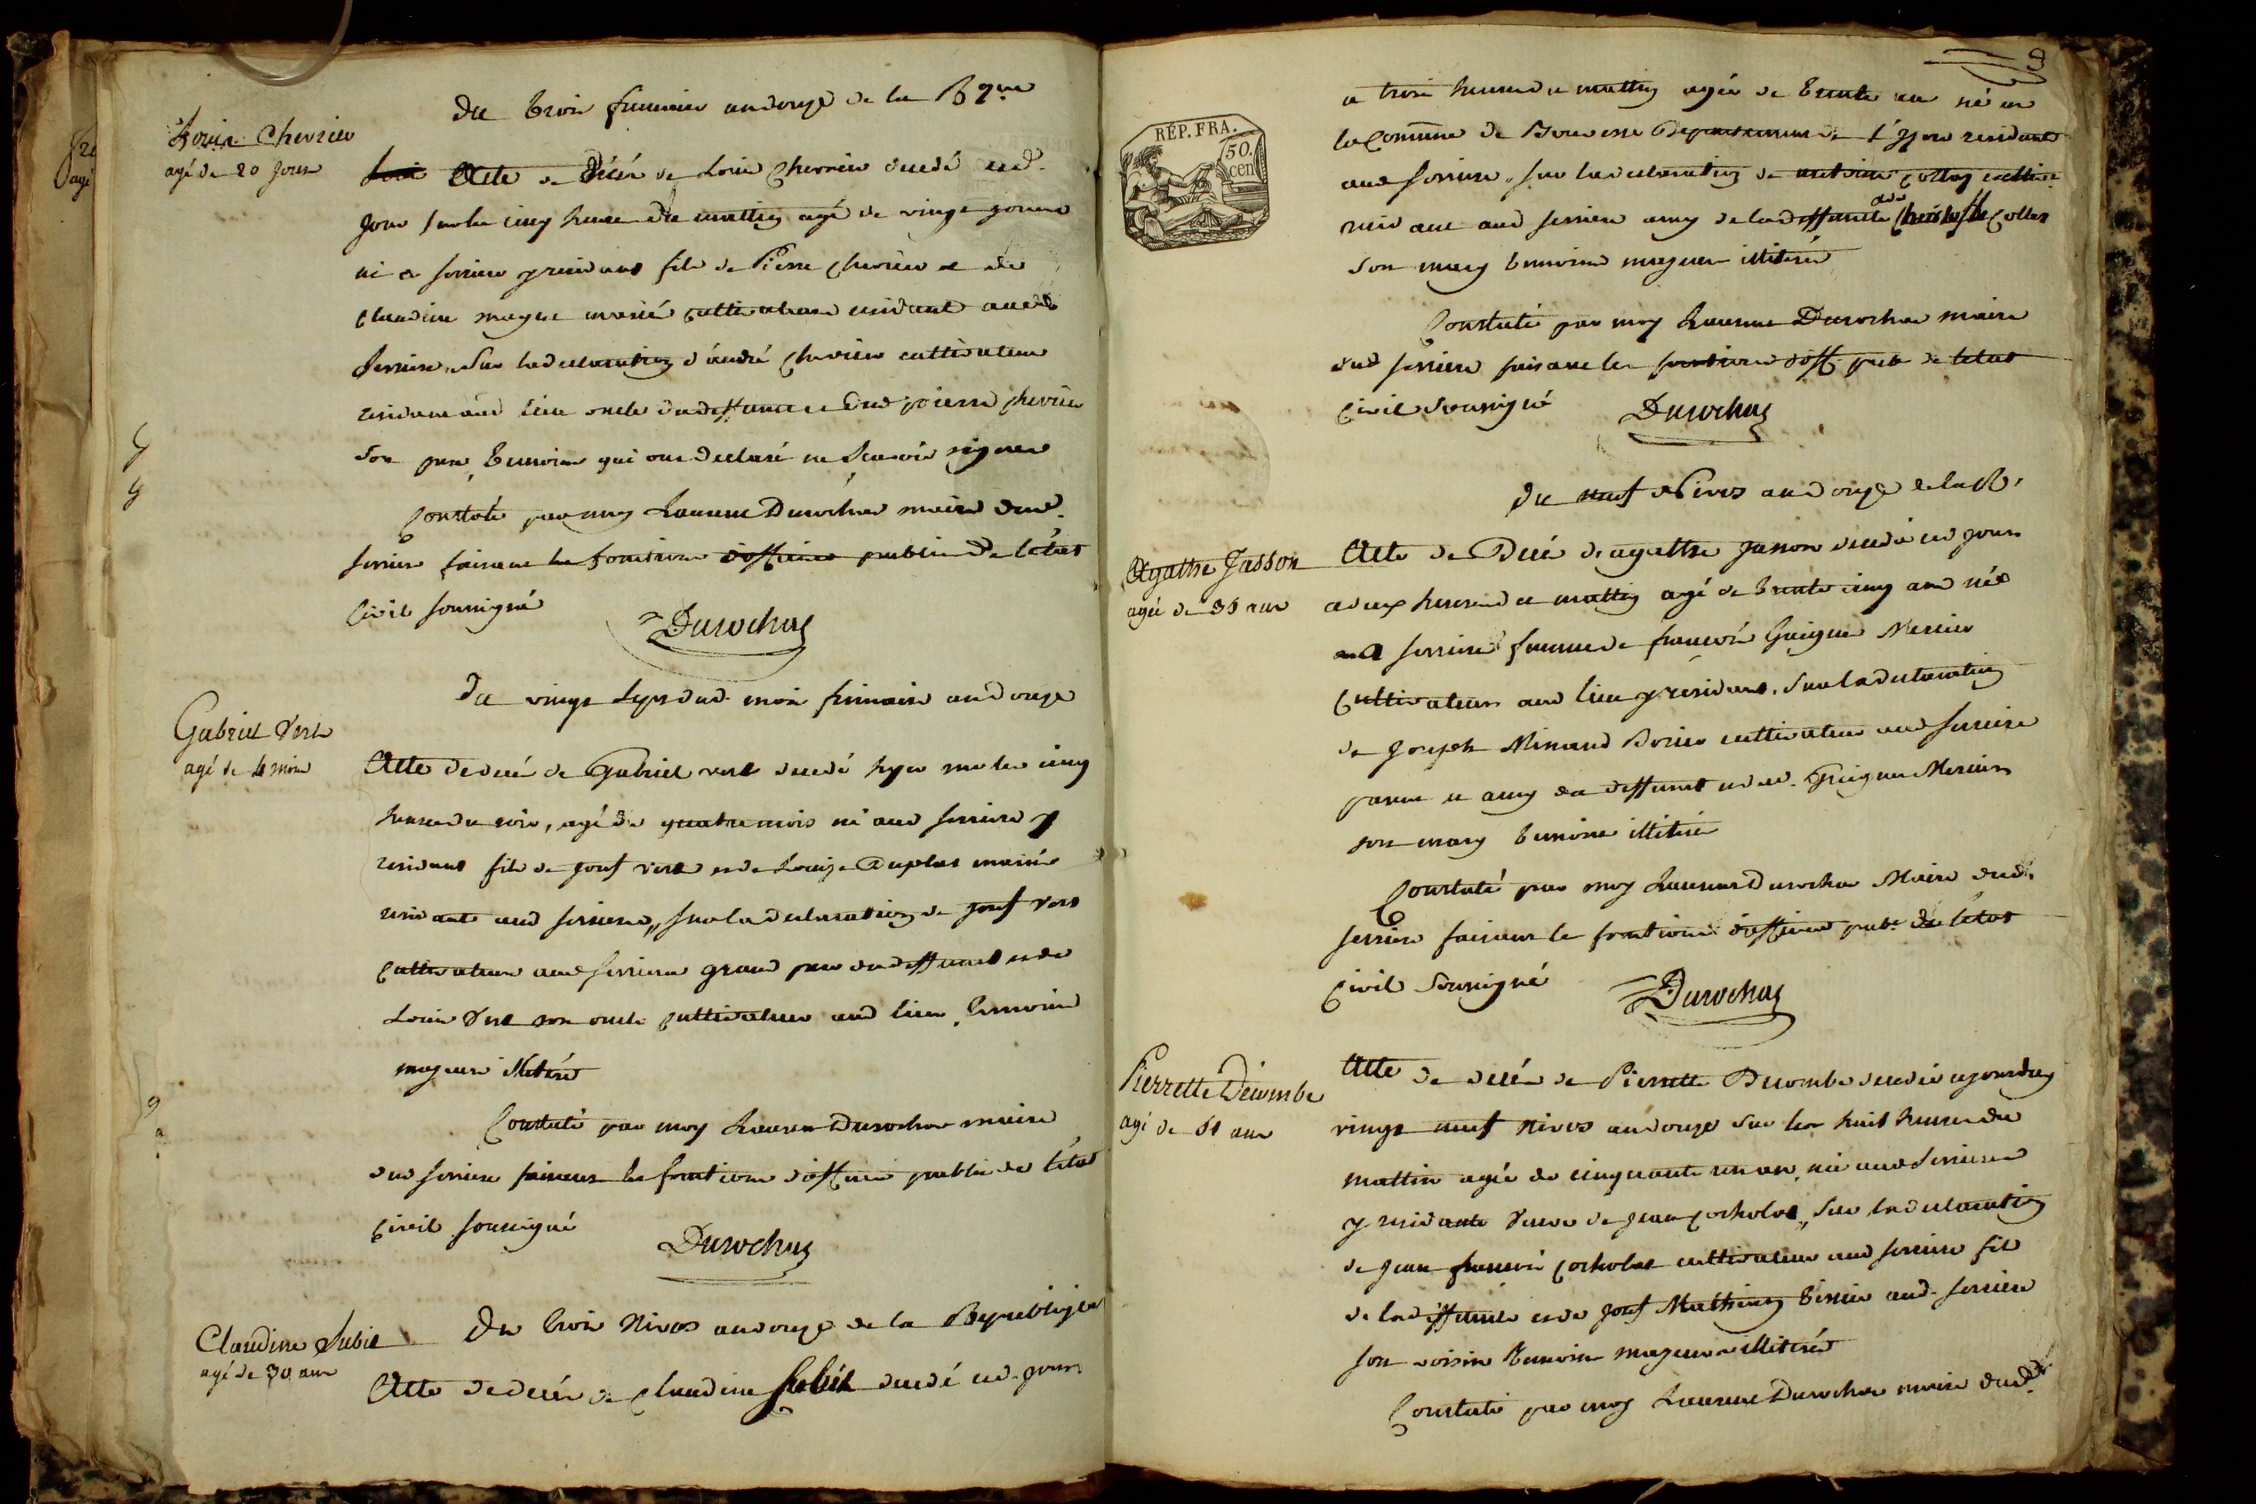 Du trois frimaire an douze de la R
Louis Chevrier
agé de 20 jours
Acte de Décés de Louis Chevrier decedé cedt.
jour sur les cinq heures du mattin agé de vingt jours
né a serriere y residant fils de Pierre Chevrier et de
Claudine mariés cultivateurs residants aud.
serriere. Sur la declaration d'andré Chevrier cultivateur
residant aud lieu oncle du deffunt et dud pierre chevrier
son pere, temoins qui ont declaré ne scavoir signer
Constaté par moy Laurent Durochat maire dud.
serriere faisant les fonctions d'officier public de l'état
Civil soussigné
Durochat
Du vingt sept dud. mois frimaire an douze
Gabriel Vert
agé de 4 mois
Acte de decé de Gabriel vert decedé hyer sur les cinq
heures du soir, agé de quatre mois né aud serriere y
residant fils de josef vert et de Louise Duplat mariés
residants aud serriere, sur la declaration de josef vert
cultivateur aud serriere grand pere du deffunt et de
Louis Vert son oncle cultivateur aud lieu, temoins
majeurs illiteré
Constaté par moy Laurent Durochat maire
dud serriere faisant les fonctions d'officier public de l'état
Civil soussigné
Durochat
Du trois Nivos an douze de la Republique
Claudine Subit
agé de 30 ans
Acte de decés de Claudine Subit decedé ced. jour
9
a trois heures du mattin agée de trente an né en
la Commune de departement de l'Izere residante
aud serriere, sur la declaration de antoine Collet cultivr.
residant aud serriere amy de la deffunte et de Christophe Collet
son mary temoins majeurs illiteré
RÉP. FRA.
50.
cen
Constaté par moy Laurent Durochat maire
dud serriere faisant les fonctions d'off. pub de l'état
Civil soussigné
Durochat
Du neuf Nivos an douze de la R.
Agathe Jasson
agée de 35 ans
Acte de Décé de agathe Jasson decedé ced jour
a deux heures du mattin agé de trente cinq ans née
a serriere femme de francois Guigue Mercier
Cultivateur aud lieu y residant. sur la declaration
de Joseph Minand cultivateur aud serriere
parent et amy du deffunt et de Guigue Mercier
son mary temoins illiteré
Constaté par moy Laurent Durochat Maire dud.
serriere faisant les fonctions d'officier pub. de l'état
Civil Soussigné
Durochat
Pierrette Décombe
agé de 51 ans
Acte de decés de Pierrette Decombe decedée ajourduy
vingt neuf Nivos an douze sur les huit heures du
mattin agée de cinquante un an, née aud serriere
y residante veuve de jean Cocholat, sur la declaration
de jean francois Cocholat cultivateur aud serriere fils
de la deffunte et de josef Mathieu aud. serriere
son voisin temoins majeurs illiteré
Constaté par moy Laurent Durochat maire dud.